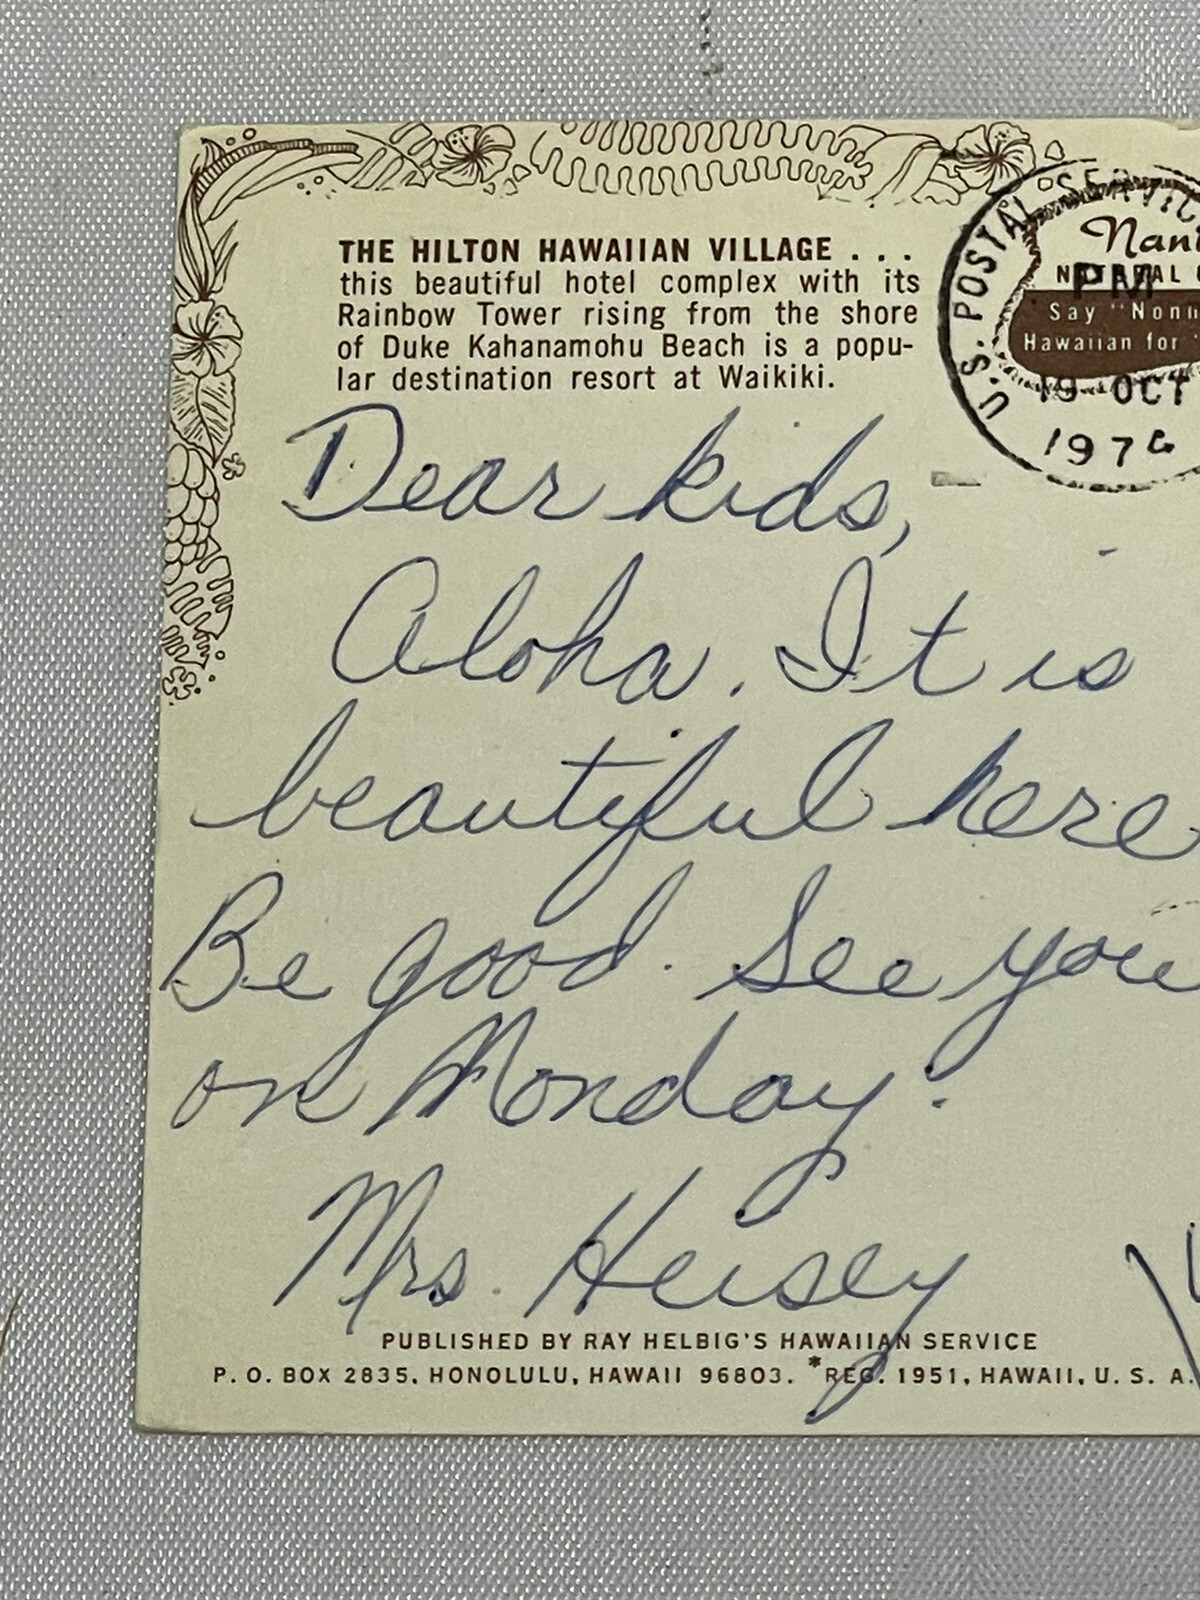 THE HILTON HAWAIIAN VILLAGE . . .
this beautiful hotel complex with its
Rainbow Tower rising from the shore
of Duke Kahanamohu Beach is a popu-
lar destination resort at Waikiki.
U.S. POSTAL SERVIC
PM
19 OCT
197
Nani
Say "Nonn
Hawaiian for "
Dear kids,
Aloha. It is
beautiful here
Be good. See you
on Monday.
Mrs. Heisey
PUBLISHED BY RAY HELBIG'S HAWAIIAN SERVICE
P. O. BOX 2835, HONOLULU, HAWAII 96803. *REG. 1951, HAWAII, U. S. A.